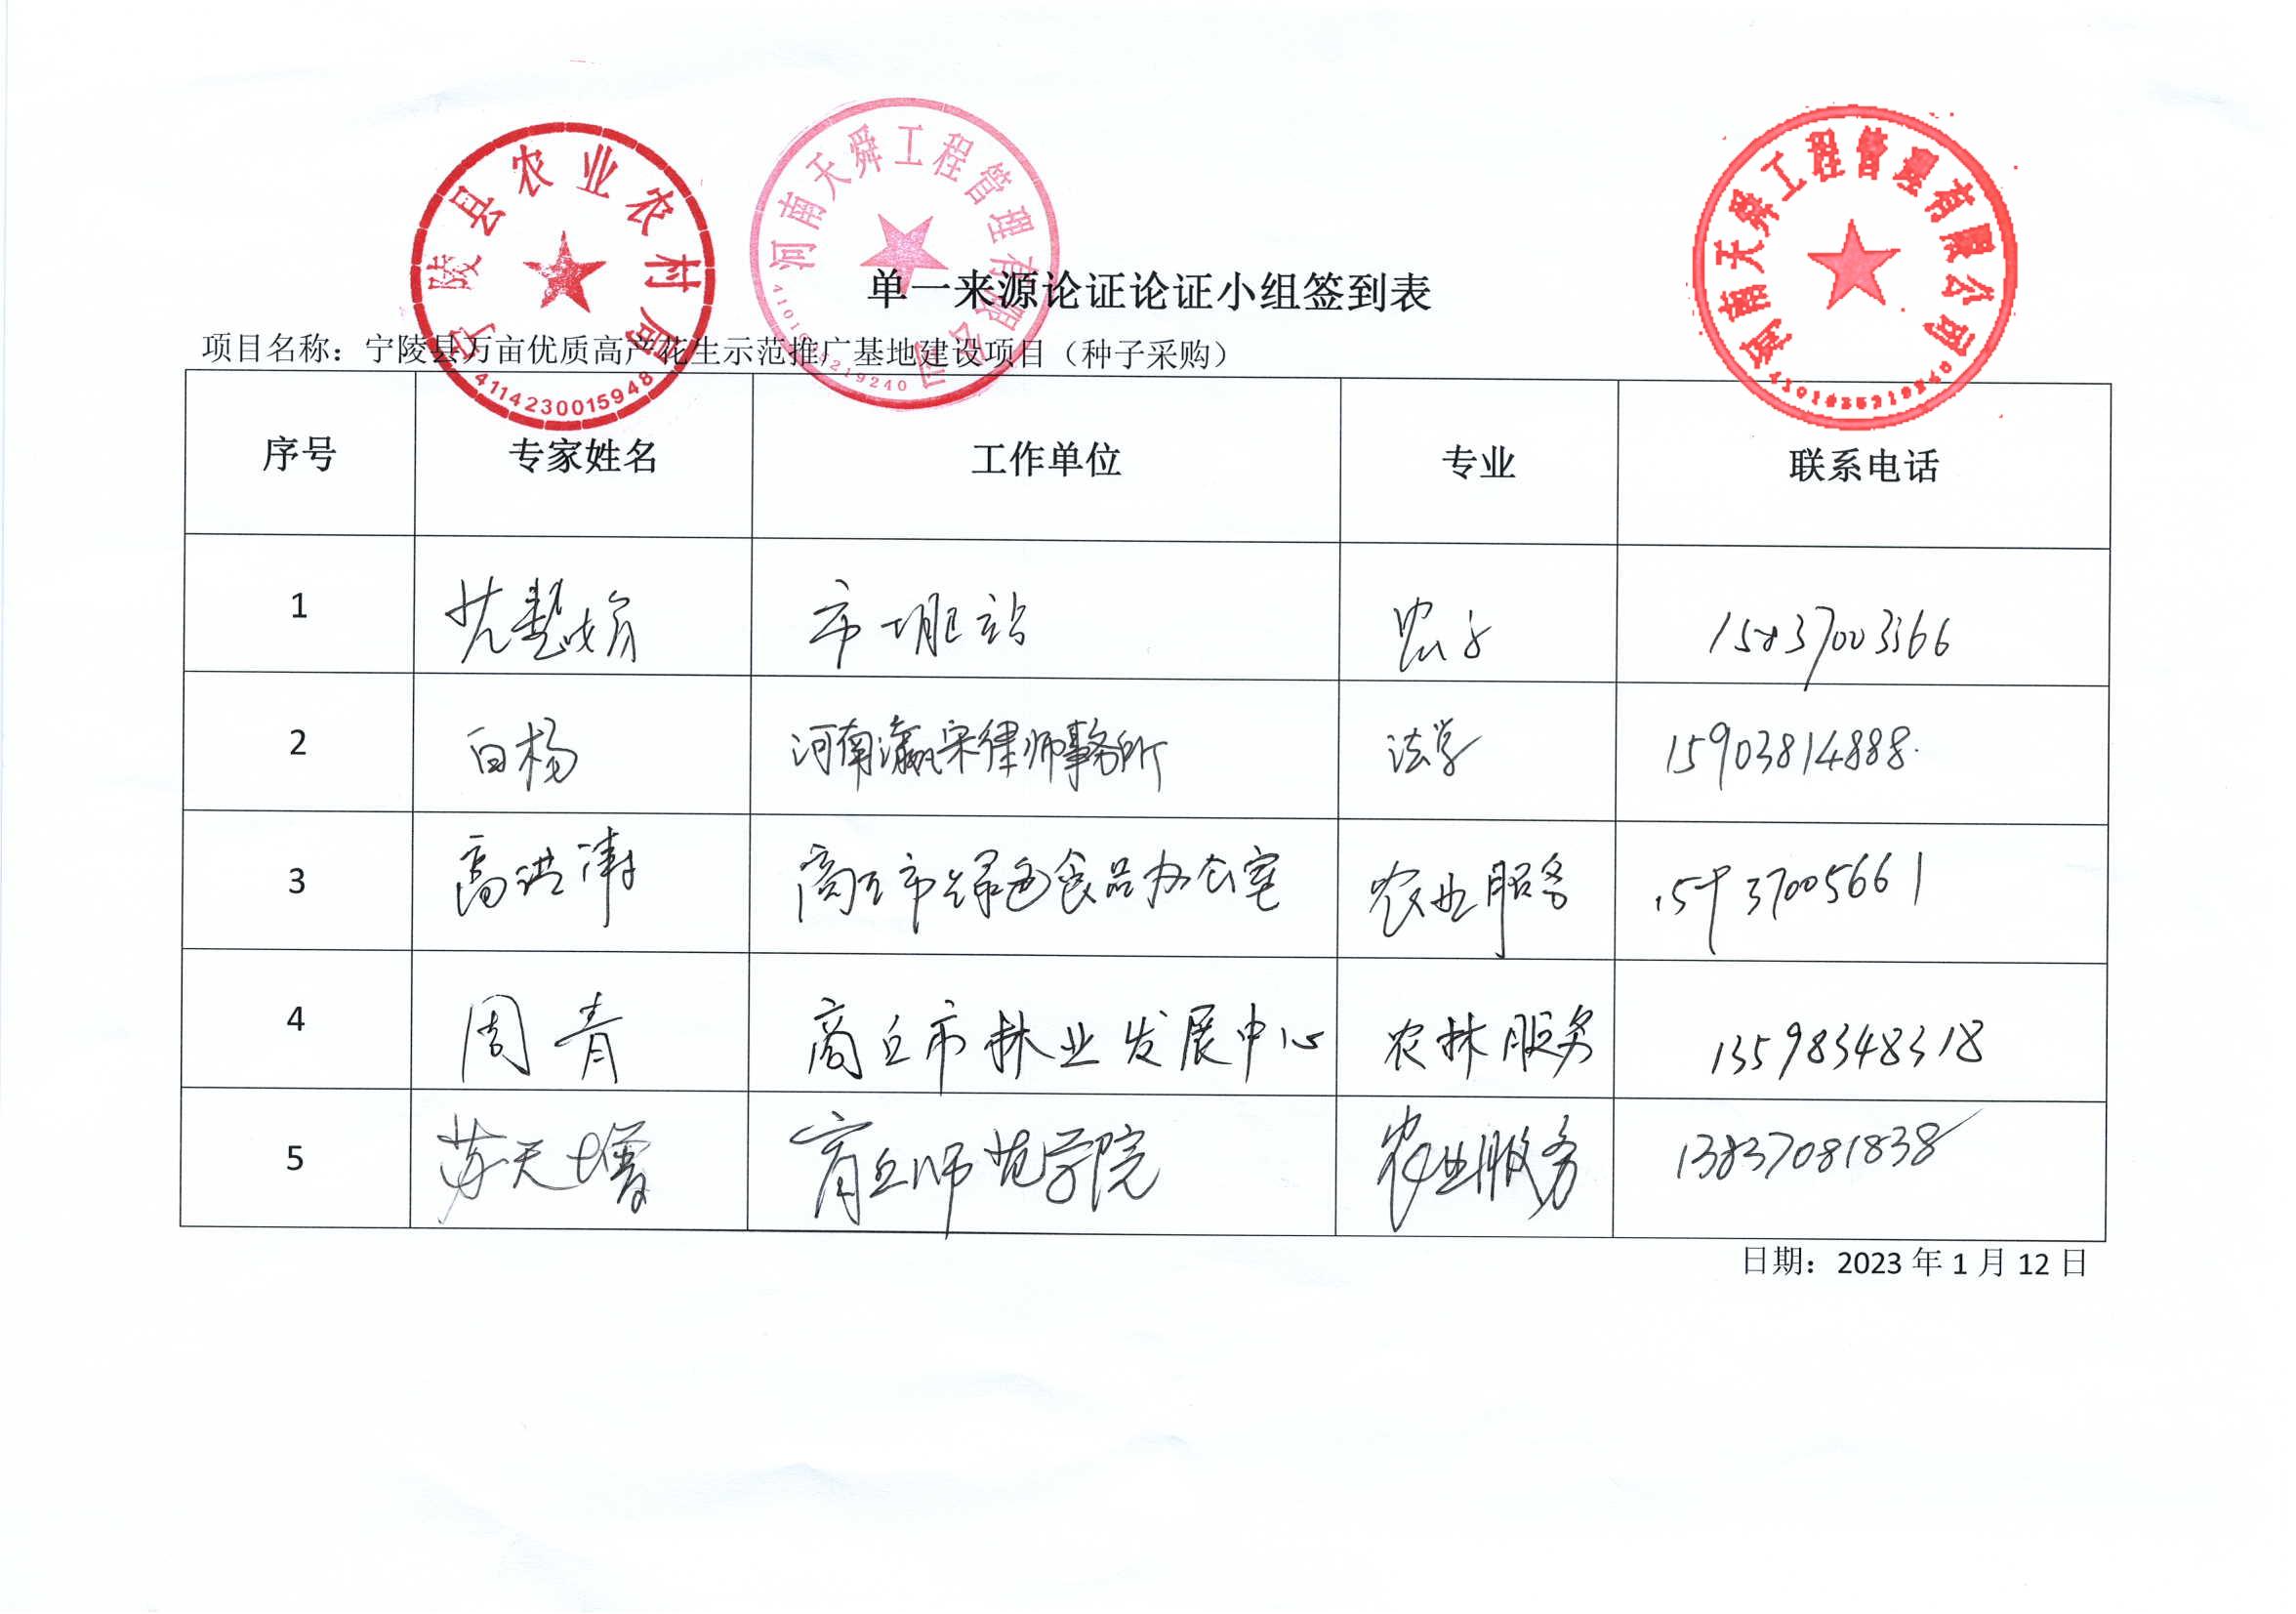 宁陵县农业农村局
4114230015948
河南天舜工程管理有限公司
4101035219240
河南天舜工程管理有限公司
4101035219240
单一来源论证论证小组签到表
项目名称：宁陵县万亩优质高产花生示范推广基地建设项目（种子采购）
序号 专家姓名 工作单位 专业 联系电话
1 市肥站 农学 15837003366
2 白杨 河南瀛宋律师事务所 法学 15903814888
3 高洪涛 商丘市绿色食品办公室 农业服务 15937005661
4 周青 商丘市林业发展中心 农林服务 13598348318
5 苏天增 商丘师范学院 农业服务 13837081838
日期：2023年1月12日